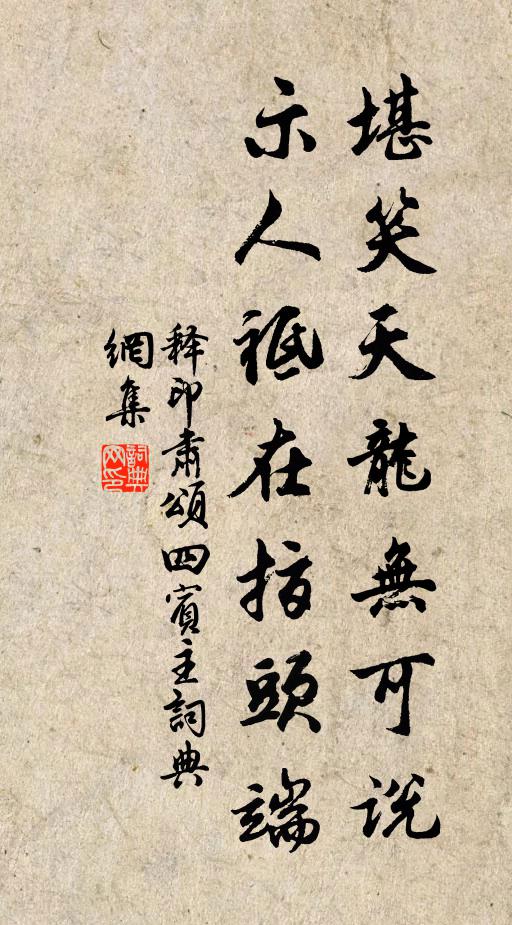 堪笑天龍無可說
示人祇在指頭端
释印肅頌四賓主詞典
網集
詞典
网印